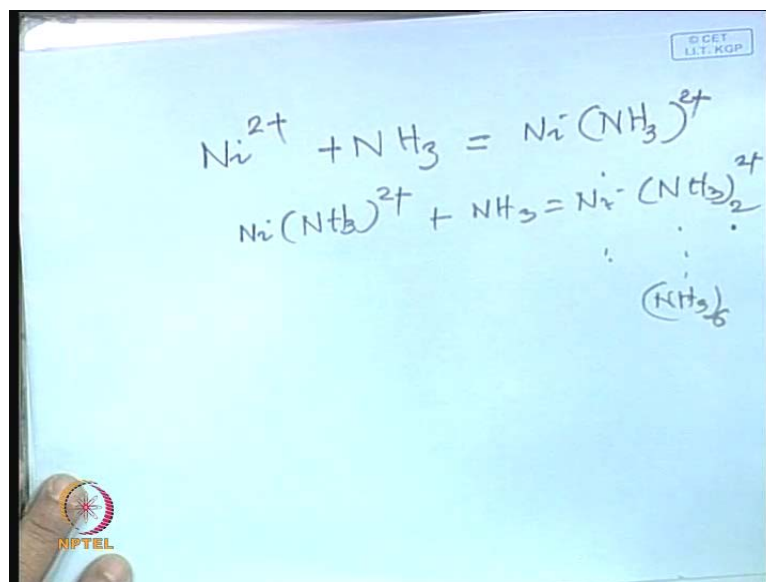 © CET
I.I.T. KGP
Ni²⁺ + NH₃ = Ni(NH₃)²⁺
Ni(NH₃)²⁺ + NH₃ = Ni(NH₃)₂²⁺
(NH₃)₆
NPTEL